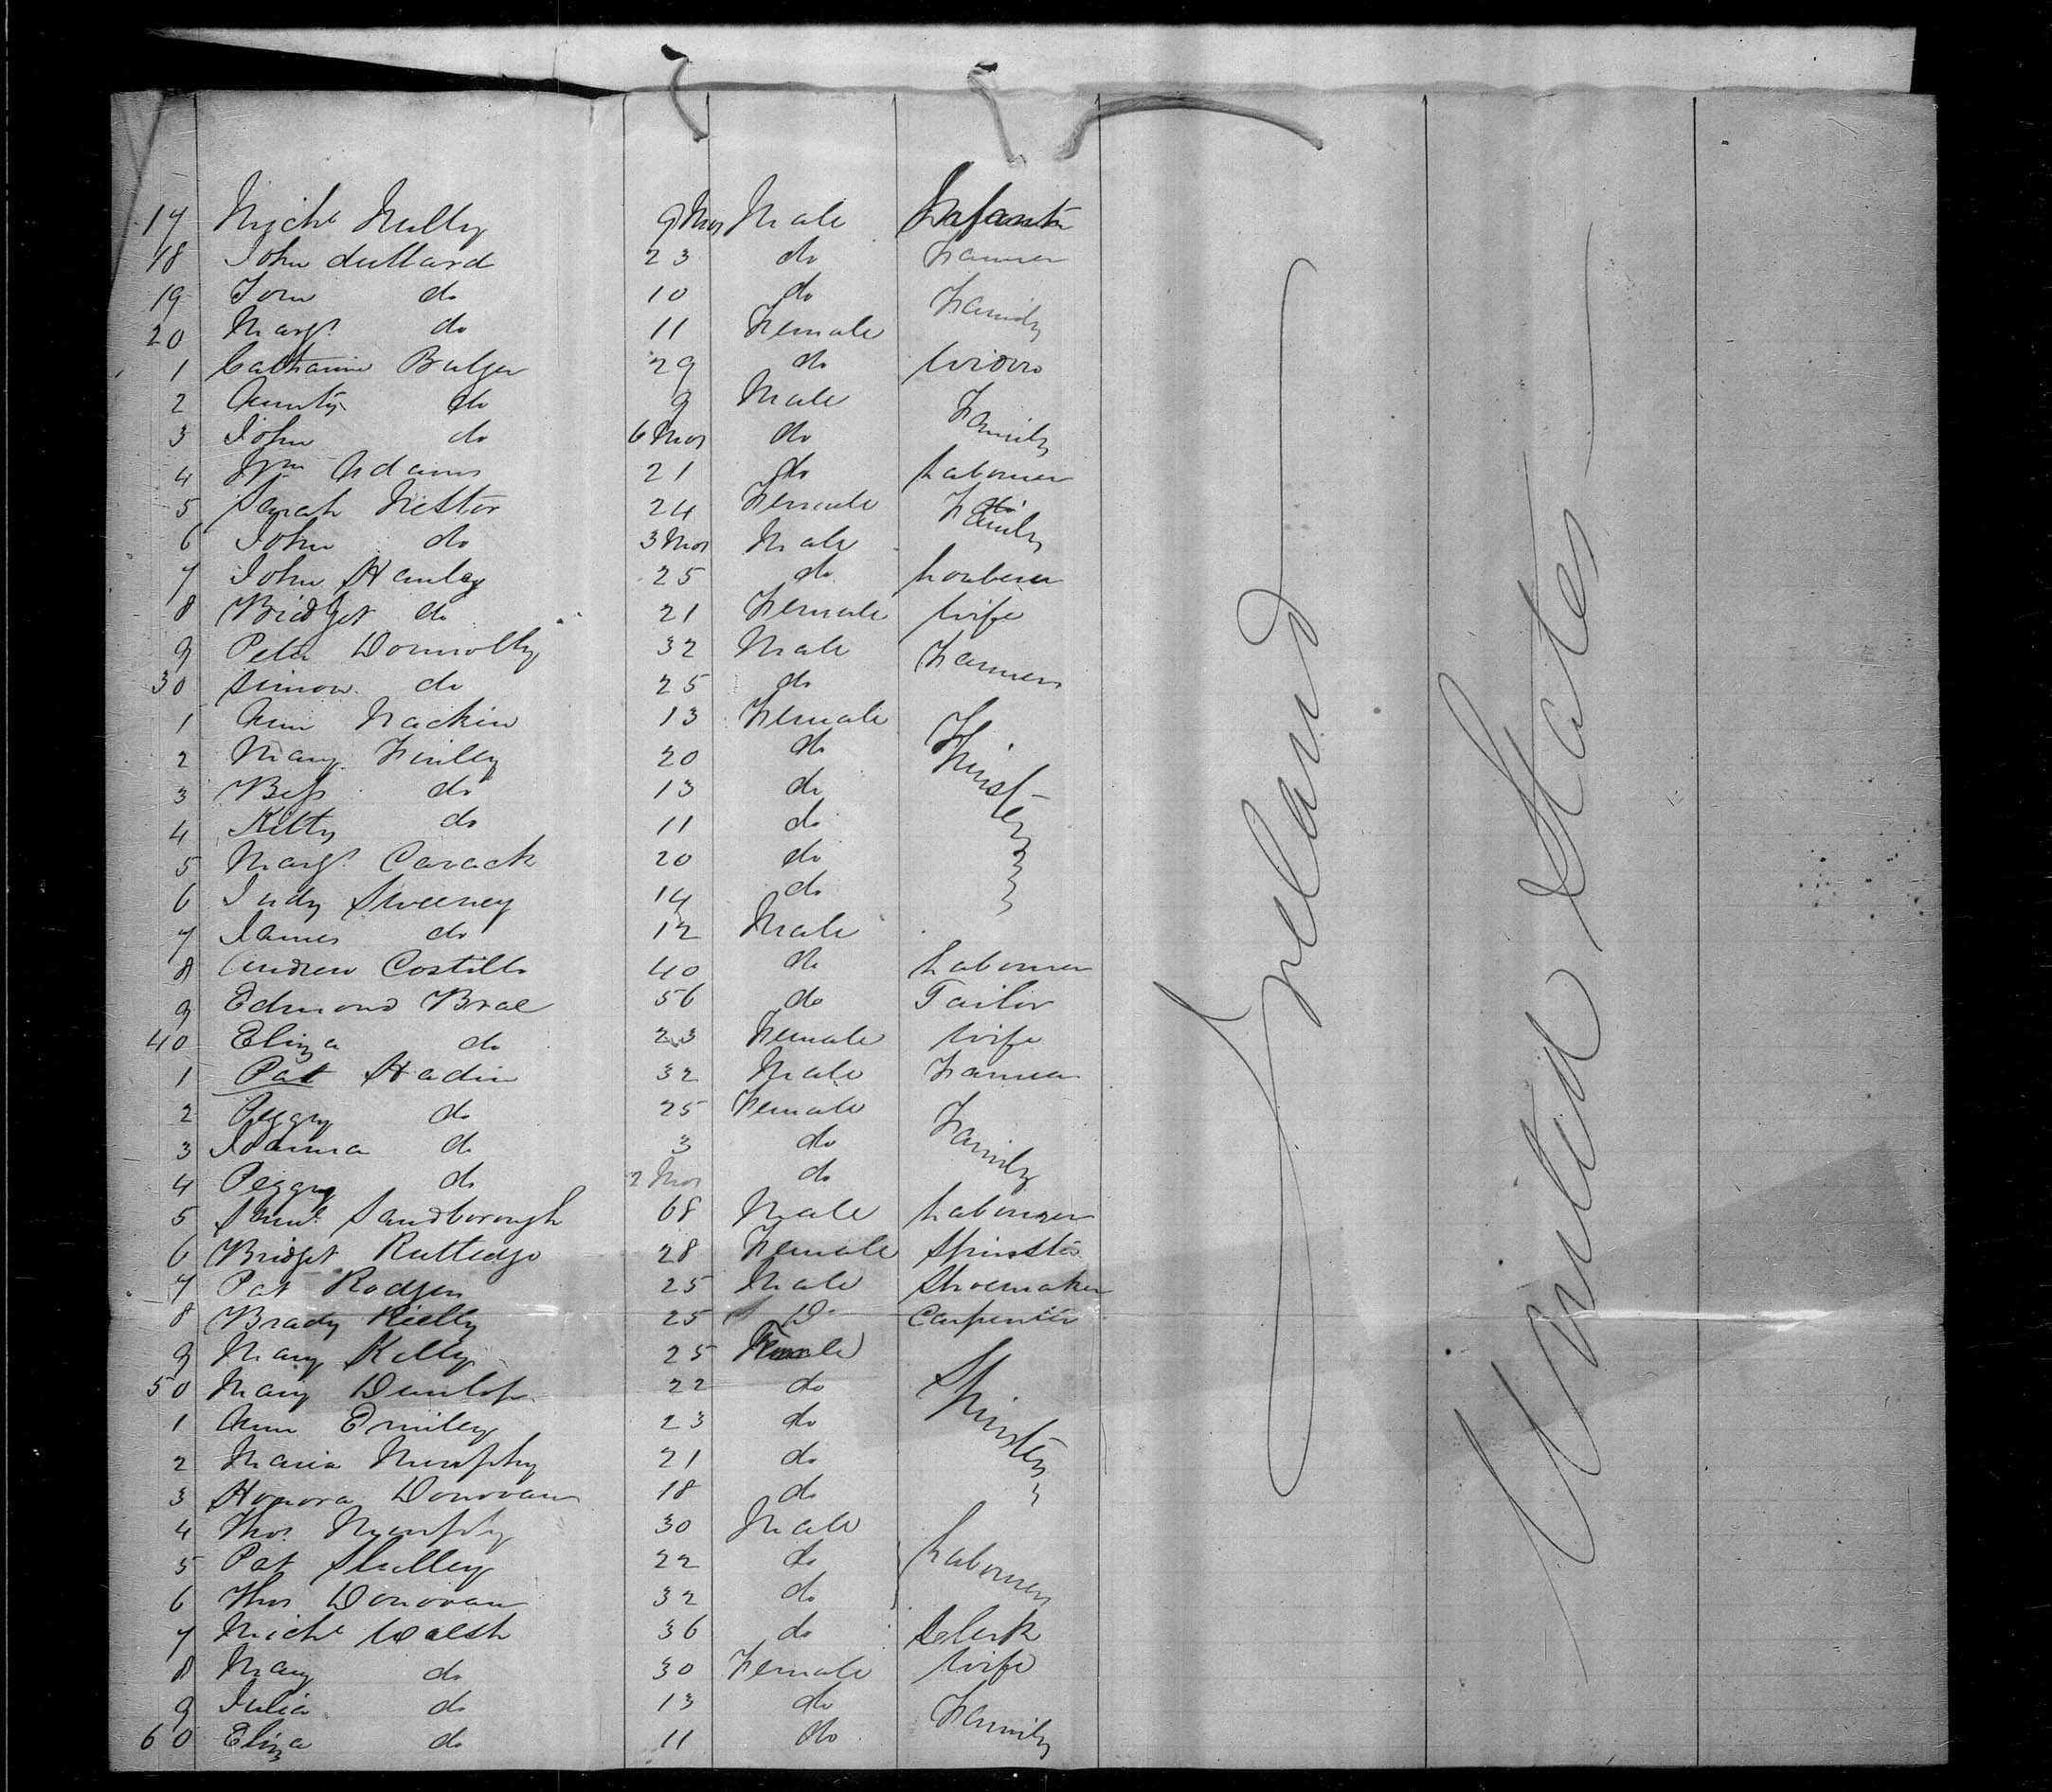 17 Mich<sup>l</sup> Nully 9 Mos Male Infant
18 John Lullard 23 do Farmer
19 Tom do 10 do Family
20 Marg<sup>t</sup> do 11 Female
1 Catharine Bulger 29 do Widow
2 do 9 Male Family
3 John do 6 Mos do
4 Wm Adams 21 do Labourer
5 Sarah Nestor 24 Female Family
6 John do 3 Mos Male
7 John Hanley 25 do
8 Bridget do 21 Female Wife
9 Peter Donnolly 32 Male Farmers
30 Simon do 25 do
1 Ann Mackin 13 Female Spinsters
2 Mary Finley 20 do
3 Bess do 13 do
4 Kitty do 11 do
5 Marg<sup>t</sup> Cavack 20 do
6 Judy Sweeney 14 do
7 James do 12 Male
8 Andrew Costillo 40 do Labourer
9 Edmond Brae 56 do Tailor
40 Eliza do 23 Female Wife
1 Pat Hadin 32 Male Farmer
2 Peggy do 25 Female Family
3 Joanna do 3 do
4 Peggy do 2 Mos do
5 Sam<sup>l</sup> Sandborough 68 Male Labourer
6 Bridget Rutledge 28 Female Spinster
7 Pat Rodgers 25 Male Shoemaker
8 Brady Rielly 25 Do Carpenter
9 Mary Kelly 25 Female Spinsters
50 Mary Dunlop 22 do
1 Ann Emiley 23 do
2 Maria Murphy 21 do
3 Honora Donovan 18 do
4 Thos Murphy 30 Male Labourers
5 Pat Skulley 22 do
6 Thos Donovan 32 do
7 Mich<sup>l</sup> Walsh 36 do Clerk
8 Mary do 30 Female Wife
9 Julia do 13 do Family
60 Eliza do 11 do
Ireland
United States